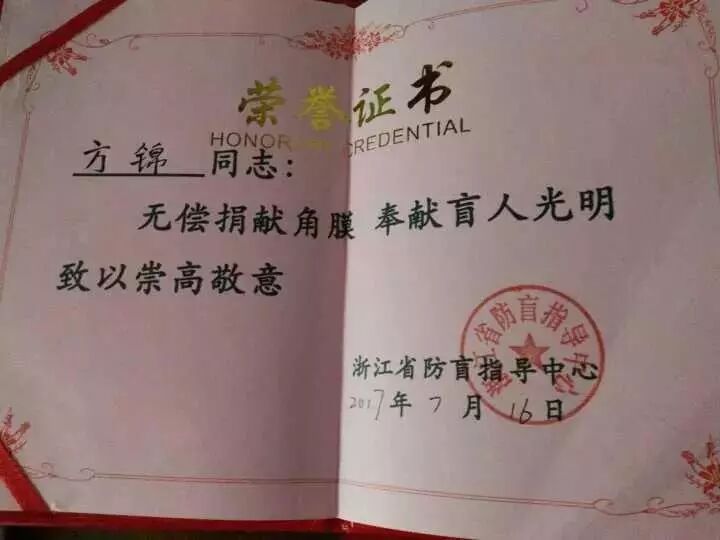 荣誉证书
CREDENTIAL
方锦 同志:
无偿捐献角膜 奉献盲人光明
致以崇高敬意
浙江省防盲指导中心
2017年7月16日
浙江省防盲指导中心